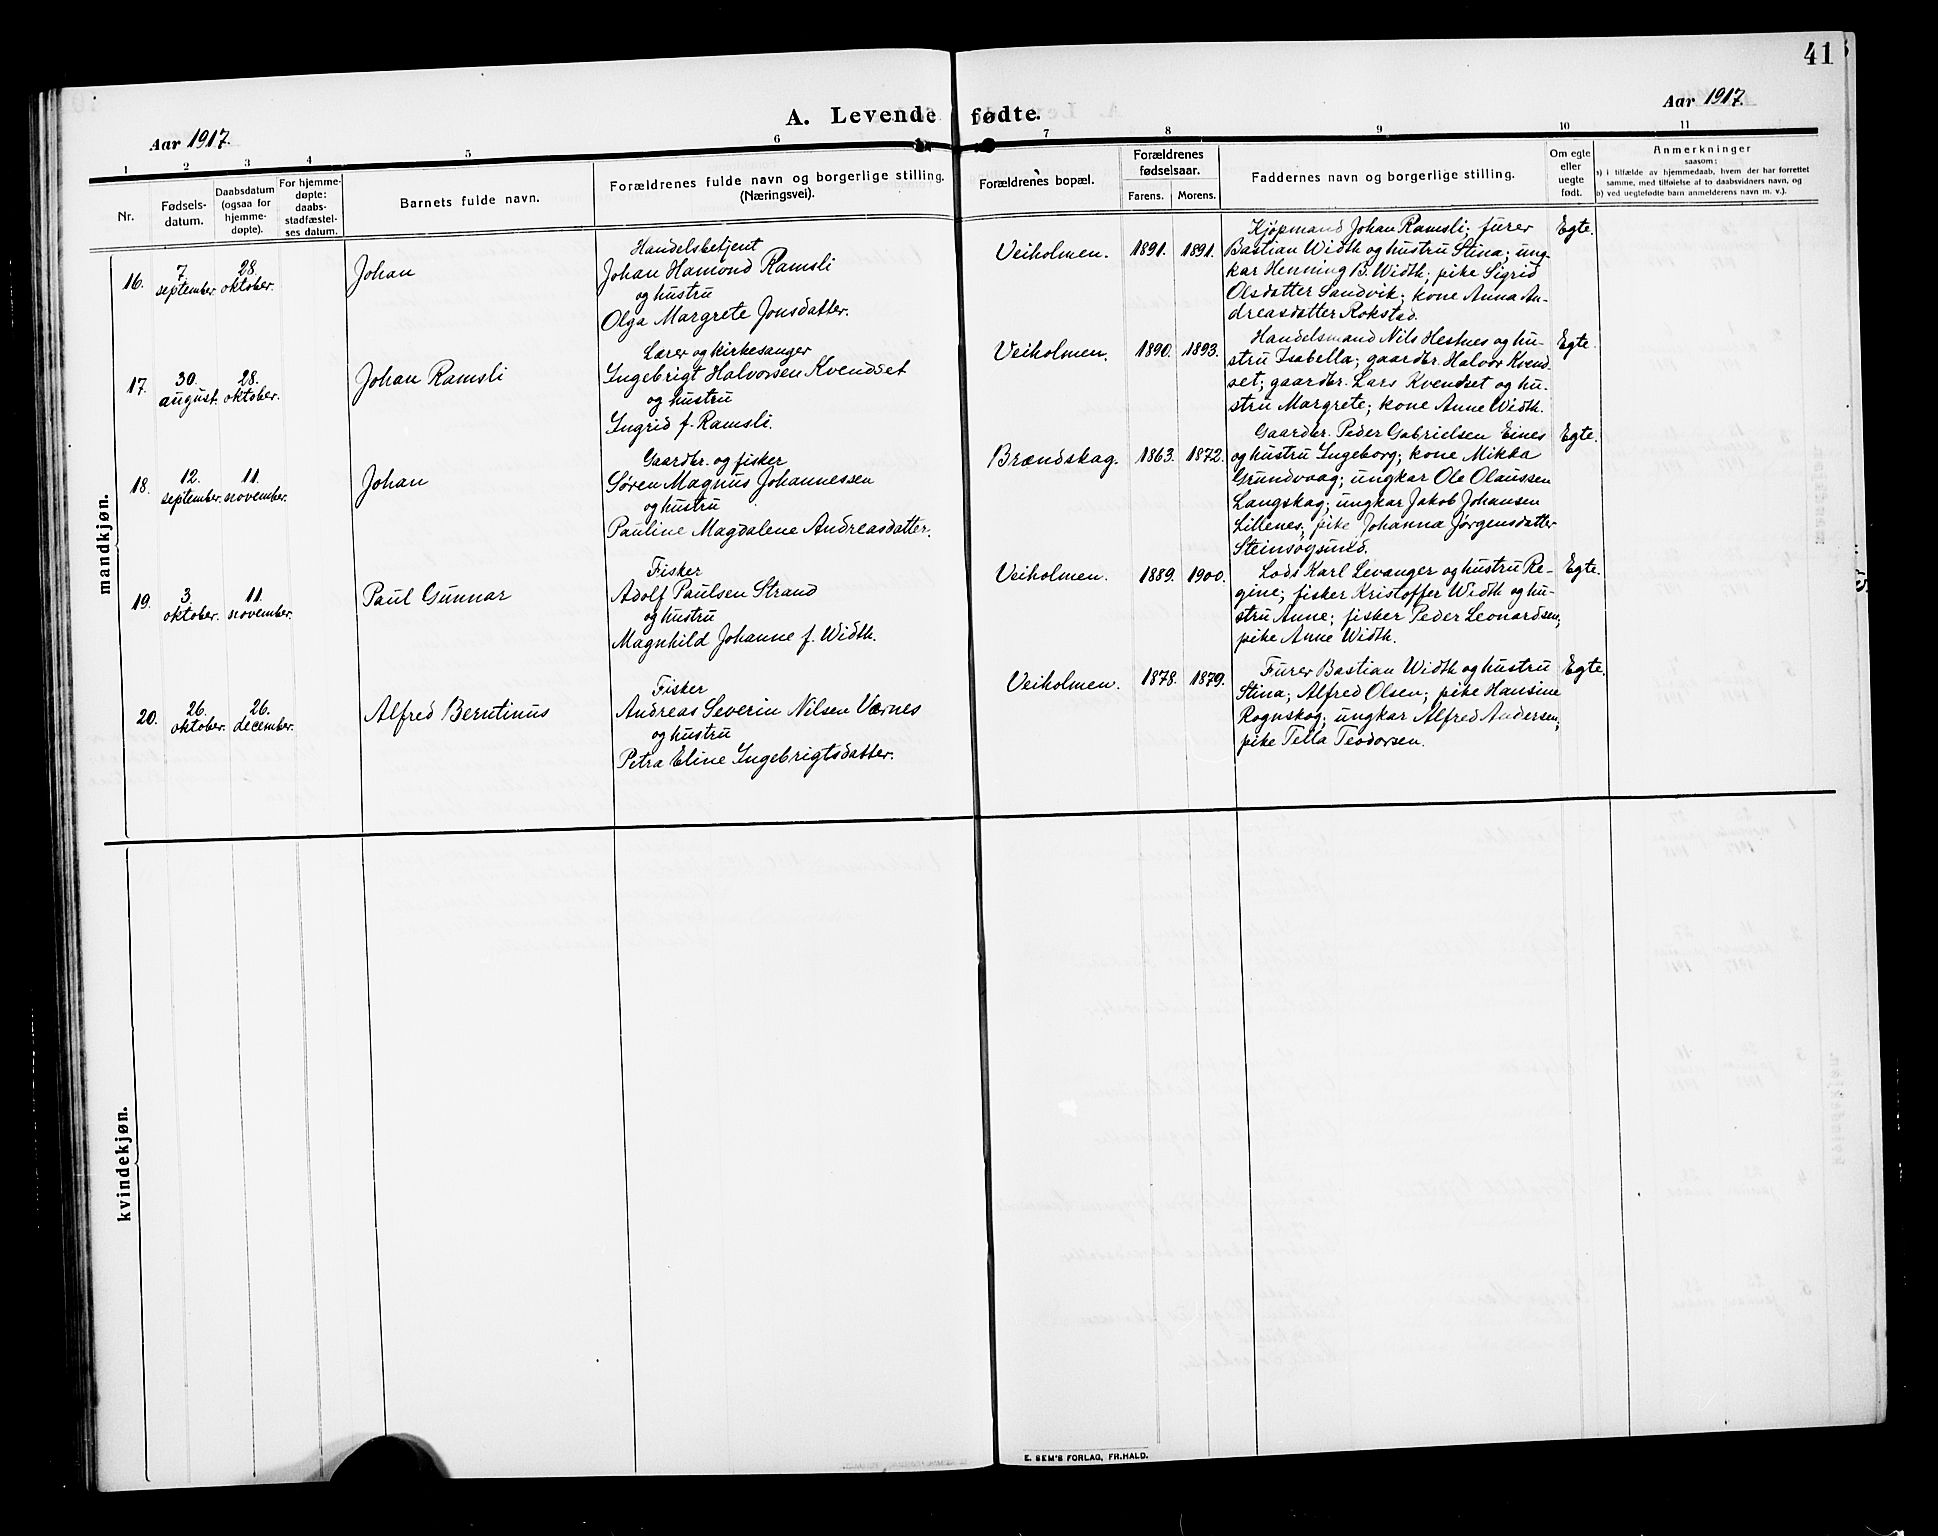 41
A. Levende fødte.
Aar 1917.
Aar 1917.
1
2
3
4
5
6
7
8
9
10
11
Nr.
Fødsels-
datum.
Daabsdatum
(ogsaa for
hjemme-
døpte).
For hjemme-
døpte:
daabs-
stadfæstel-
ses datum.
Barnets fulde navn.
Forældrenes fulde navn og borgerlige stilling.
(Næringsvei).
Forældrenes bopæl.
Forældrenes
fødselsaar.
Farens.
Morens.
Faddernes navn og borgerlige stilling.
Om egte
eller
uegte
født.
Anmerkninger
saasom:
a) i tilfælde av hjemmedaab, hvem der har forrettet
samme, med tilføielse af to daabsvidners navn, og
b) ved uegtefødte barn anmelderens navn m. v.).
mandkjøn.
16.
7.
september.
28.
oktober.
Johan
Handelsbetjent
Johan Hamond Ramsli
og hustru
Olga Margrete Jonsdatter.
Veiholmen.
1891.
1891.
Kjøpmand Johan Ramsli; furer
Bastian Width og hustru Stina; ung-
kar Henning B. Width; pike Sigrid
Olsdatter Sandvik; kone Anna An-
dreasdatter Rokstad.
Egte.
17.
30.
august.
28.
oktober.
Johan Ramsli
Lærer og kirkesanger
Ingebrigt Halvorsen Kvendset
og hustru
Ingrid f. Ramsli.
Veiholmen.
1890.
1893.
Handelsmand Nils Hestnes og hu-
stru Isabella; gaardbr. Halvor Kvend-
set; gaardbr. Lars Kvendset og hu-
stru Margrete; kone Anne Width.
Egte.
18.
12.
september.
11.
november.
Johan
Gaardbr. og fisker
Søren Magnus Johannessen
og hustru
Pauline Magdalene Andreasdatter.
Brændskag.
1863.
1872.
Gaardbr. Peder Gabrielsen Eines
og hustru Ingeborg; kone Mikka
Grundvaag; ungkar Ole Olaussen
Langskag; ungkar Jakob Johansen
Lillenes; pike Johanna Jørgensdatter
Steinsøysund.
Egte.
19.
3.
oktober.
11.
november.
Paul Gunnar
Fisker
Adolf Paulsen Strand
og hustru
Magnhild Johanne f. Width.
Veiholmen.
1889.
1900.
Lods Karl Levanger og hustru Re-
gine; fisker Kristoffer Width og hu-
stru Anne; fisker Peder Leonardsen;
pike Anne Width.
Egte.
20.
26.
oktober.
26.
december.
Alfred Berntinus
Fisker
Andreas Severin Nilsen Værnes
og hustru
Petra Eline Ingebrigtsdatter.
Veiholmen.
1878.
1879.
Furer Bastian Width og hustru
Stina; Alfred Olsen; pike Hansine
Rognskog; ungkar Alfred Andersen;
pike Tella Teodorsen.
Egte.
kvindekjøn.
E. SEM'S FORLAG, FR.HALD.